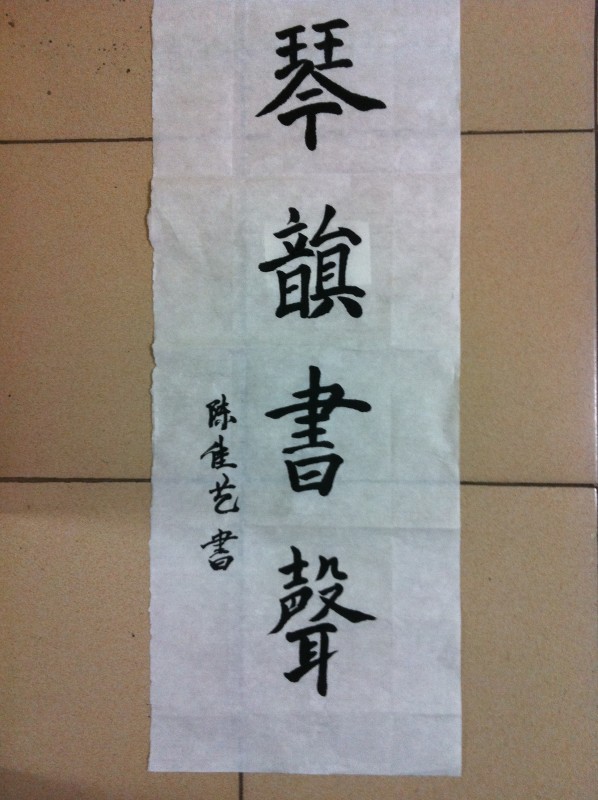 琴韻書聲
陈佳艺書